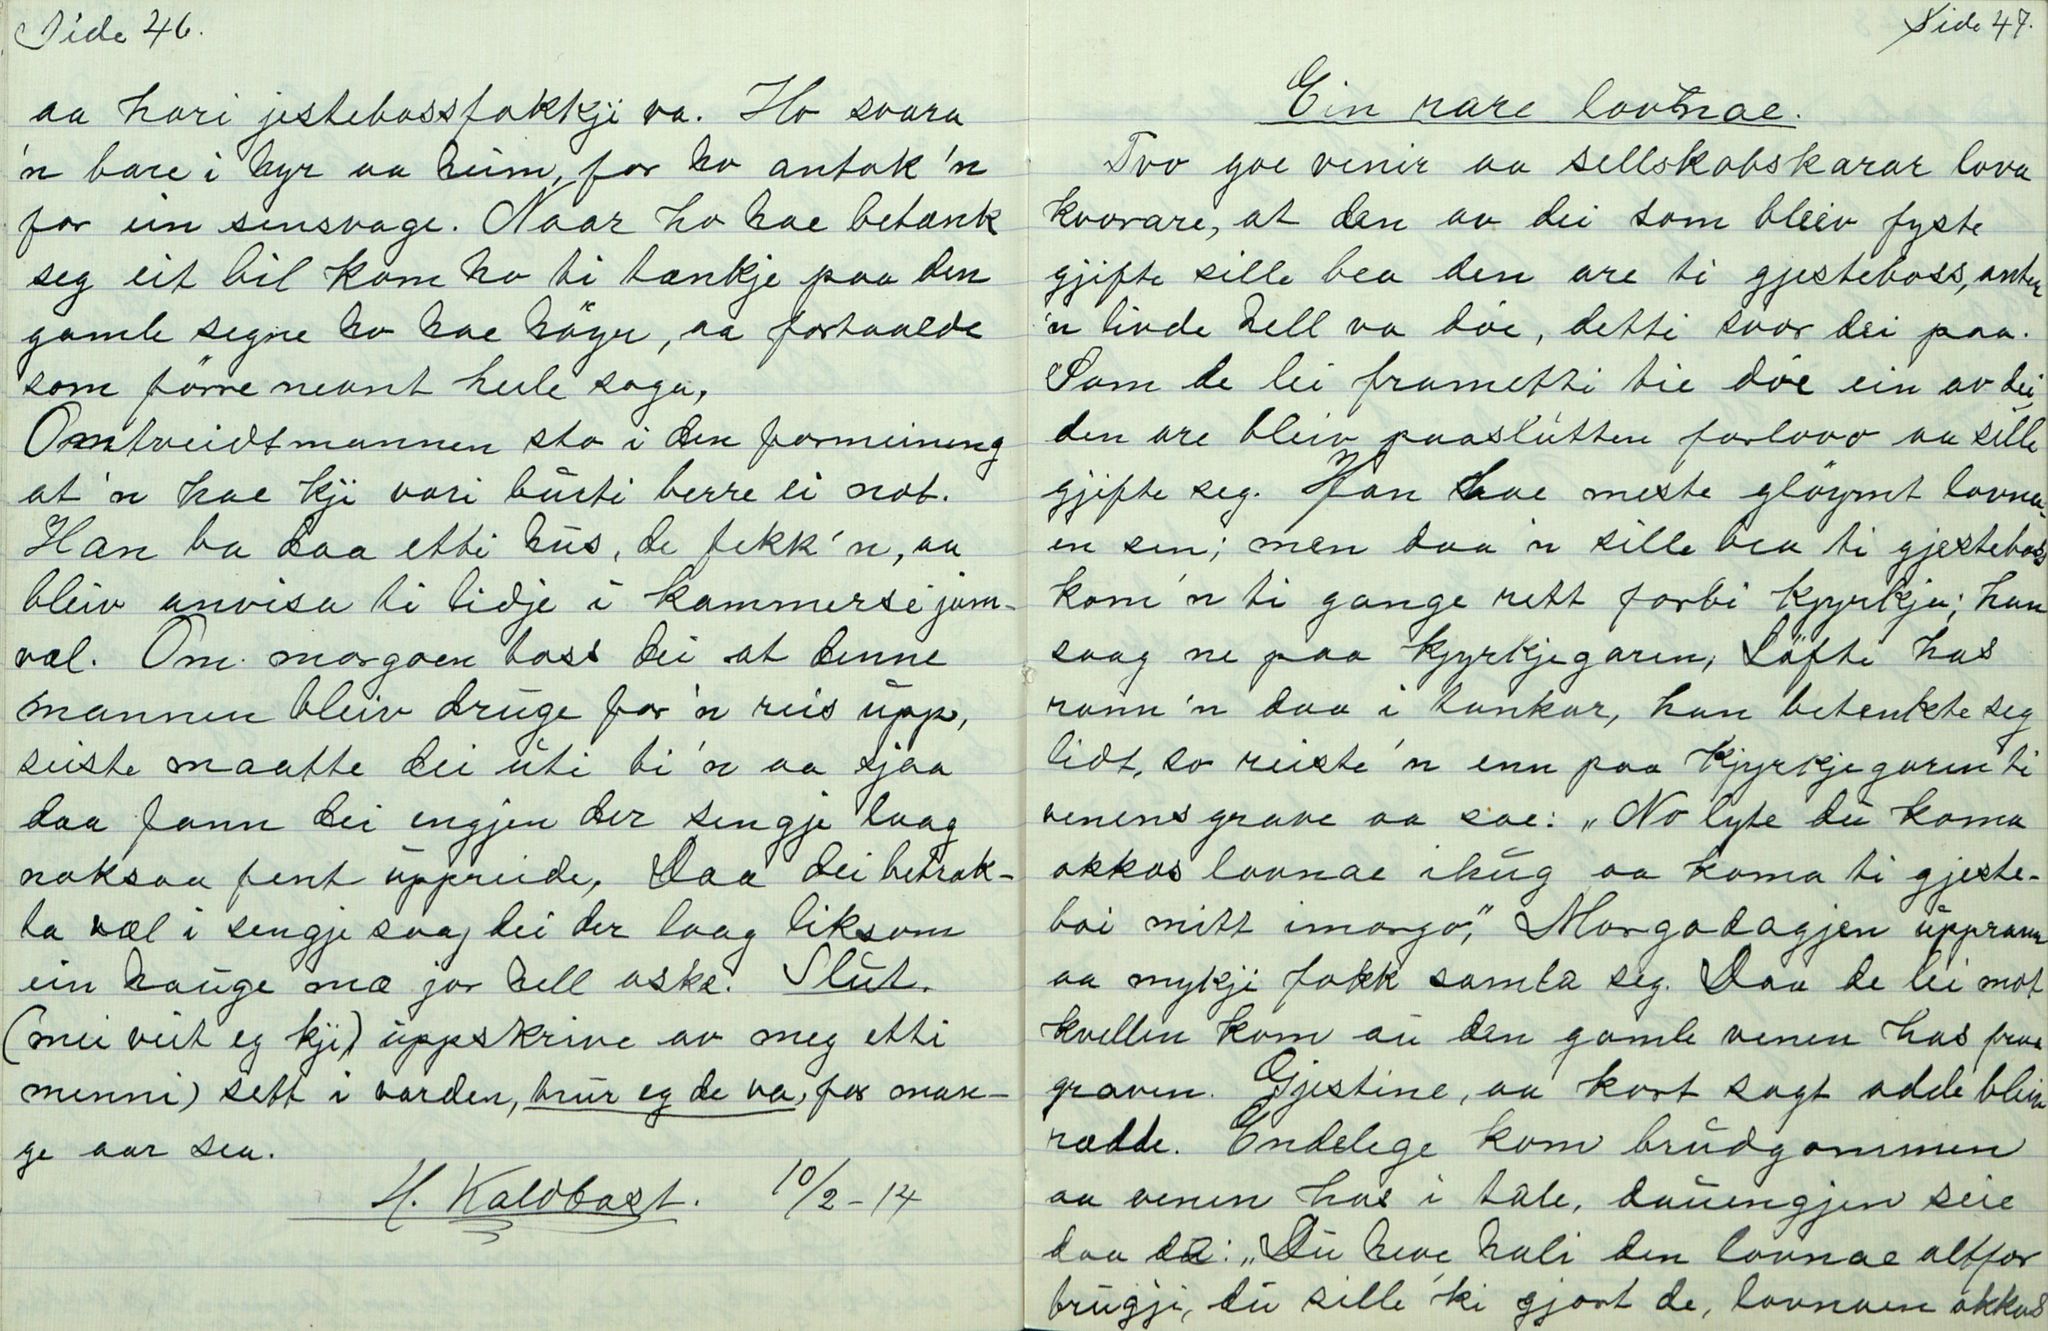 Side 46.
aa hari jestebossfokkji va. Ho svara
'n bare i hyr aa heim, for ho antok 'n
for ein sinsvage. Naar ho hae betænk
seg eit bil kom ho ti tænkje paa den
gamle segne ho hae höyr, aa fortaalde
som förre neant heile soga,
Omtveidtmannen sto i den formeining
at 'n hae kji vori bůrti berre ei not.
Han ba daa etti hůs, de fekk 'n, aa
bleiv anvisa ti lidje i kammerse jam-
væl. Om morgoen toss dei at denne
mannen bleiv drůge for 'n reis ůpp,
seiste maatte dei ůti ti 'n aa sjaa
daa fann dei engjen der sengje laag
noksaa fent ůppreide, Daa dei betrak-
ta væl i sengje saag dei der laag liksom
ein haůge mæ jor hell aske. Slůt.
(mei veit eg kji) ůppskrive av meg etti
menni) sett i varden, trůr eg de va, for man-
ge aar sea.
H. Kaldbast. 10/2-14
Side 47.
Ein rare lovnae.
Tvo goe venir aa sellskobskarar lova
kvorare, at den av dei som bleiv fyste
gjifte sille bea den are ti gjesteboss, anten
'n livde hell va döe, detti svor dei paa.
Som de lei frametti tie döe ein av dei,
den are bleiv paaslůtten forlovo aa sille
gjifte seg. Han hae meste glöymt lovna-
en sin; men daa 'n sille bea ti gjesteboss
kom 'n ti gange rett forbi kjyrkju; han
saag ne paa kjyrkjegaren, Löfte has
rann 'n daa i tankar, han betenkte seg
lidt, so reiste 'n enn paa kjyrkjegaren ti
venens grave aa sae: „No lyte dů koma
okkos lovnae ihůg aa koma ti gjeste-
boi mitt imorgo," Morgodagjen ůpprann
aa mykji fokk samla seg. Daa de lei mot
kvellen kom aů den gamle venen has fraa
graven. Gjestine, aa kort sagt adde bleiv
rædde. Endelege kom brůdgommen
aa venen has i tale, daůengjen seie
daa da: „Dů heve hali den lovnae altfor
trůgji, dů sille 'ki gjort de, lovnaen okkos